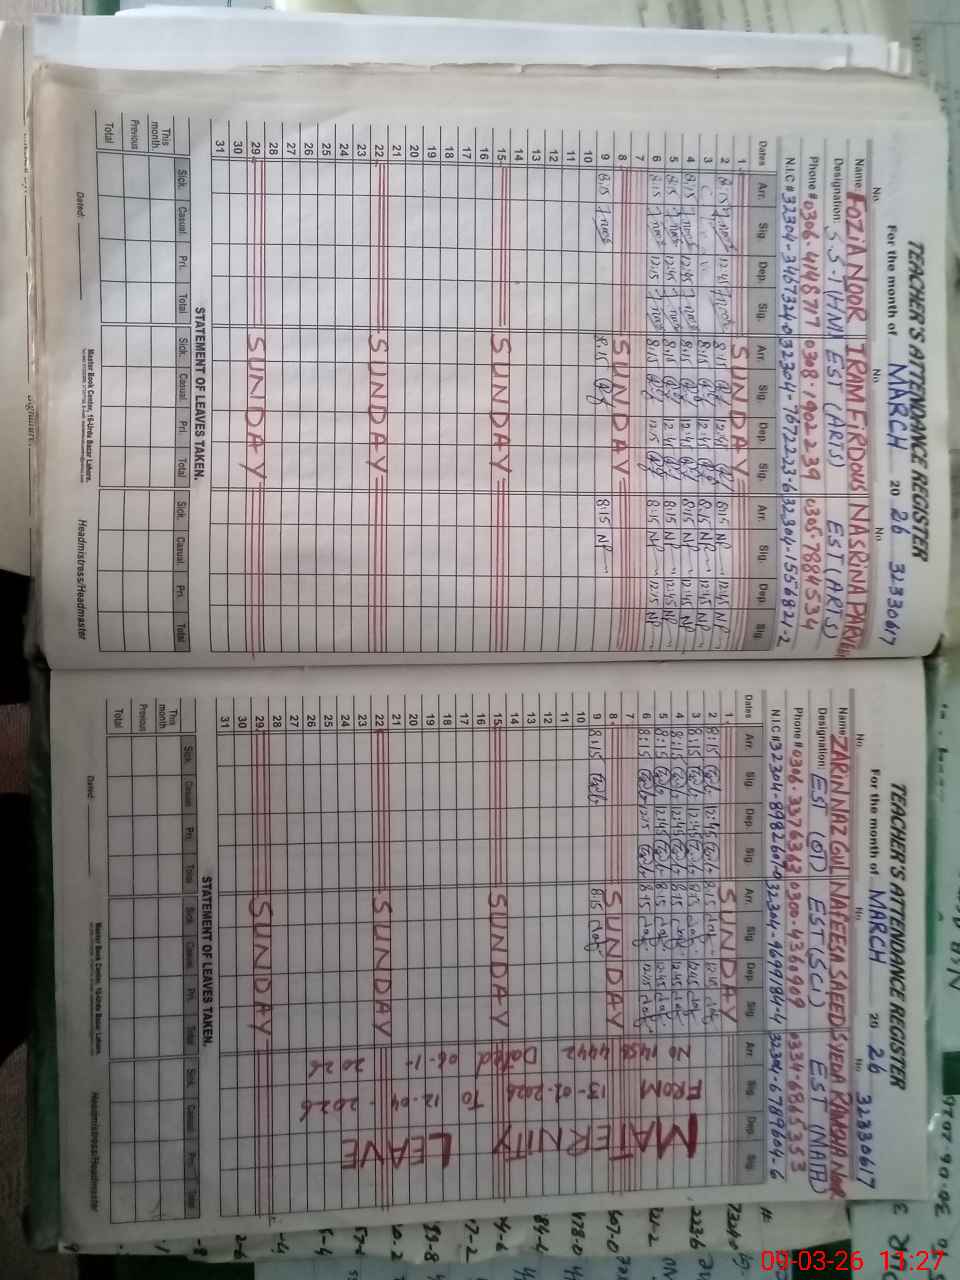 TEACHER'S ATTENDANCE REGISTER
For the month of MARCH 20 26 32330617
No. No. No.
Name: FOZIA NOOR IRAM FIRDOUS NASRINA PARVEEN
Designation: S.S.T (HM) EST (ARTS) EST (ARTS)
Phone # 0306-4148717 0308-1902239 0305-7884534
N.I.C # 32304-3467324-0 32304-7672223-6 32304-1556821-2
Dates Arr. Sig. Dep. Sig. Arr. Sig. Dep. Sig. Arr. Sig. Dep. Sig.
1 SUNDAY
2 8:15 12:45 8:15 12:45 8:15 NP 12:45 NP
3 8:15 12:45 8:15 NP 12:45 NP
4 8:15 12:45 8:15 12:45 8:15 NP 12:45 NP
5 8:15 12:45 8:15 12:45 8:15 NP 12:45 NP
6 8:15 12:15 8:15 12:15 8:15 NP 12:15 NP
7
8 SUNDAY
9 8:15 8:15 8:15 NP
10
11
12
13
14
15 SUNDAY
16
17
18
19
20
21
22 SUNDAY
23
24
25
26
27
28
29 SUNDAY
30
31
STATEMENT OF LEAVES TAKEN.
Sick. Casual. Pri. Total Sick. Casual. Pri. Total Sick. Casual. Pri. Total
This month
Previous
Total
Dated: Master Book Center, 16-Urdu Bazar Lahore. Headmistress/Headmaster
TEACHER'S ATTENDANCE REGISTER
For the month of MARCH 20 26 32330617
No. No. No.
Name: ZARINNAZ GUL NAFEESA SAEED SYEDA RIMSHA NOOR
Designation: EST (OT) EST (SCI) EST (MATH)
Phone # 0306-3376363 0300-4360909 0334-6865353
N.I.C # 32304-8982607-0 32304-9699184-4 32304-6789604-6
Dates Arr. Sig. Dep. Sig. Arr. Sig. Dep. Sig. Arr. Sig. Dep. Sig.
1 SUNDAY
2 8:15 12:45 8:15 12:45
3 8:15 12:45 8:15 12:45
4 8:15 12:45 8:15 12:45
5 8:15 12:45 8:15 12:45
6 8:15 12:15 8:15 12:15
7
8 SUNDAY
9 8:15 8:15
10
11
12
13
14
15 SUNDAY
16
17
18
19
20
21
22 SUNDAY
23
24
25
26
27
28
29 SUNDAY
30
31
MATERNITY LEAVE
FROM 13-01-2026 TO 12-04-2026
Dated 06-1-2026
STATEMENT OF LEAVES TAKEN.
Sick. Casual. Pri. Total Sick. Casual. Pri. Total Sick. Casual. Pri. Total
This month
Previous
Total
Dated: Master Book Center, 16-Urdu Bazar Lahore. Headmistress/Headmaster
09-03-26 11:27